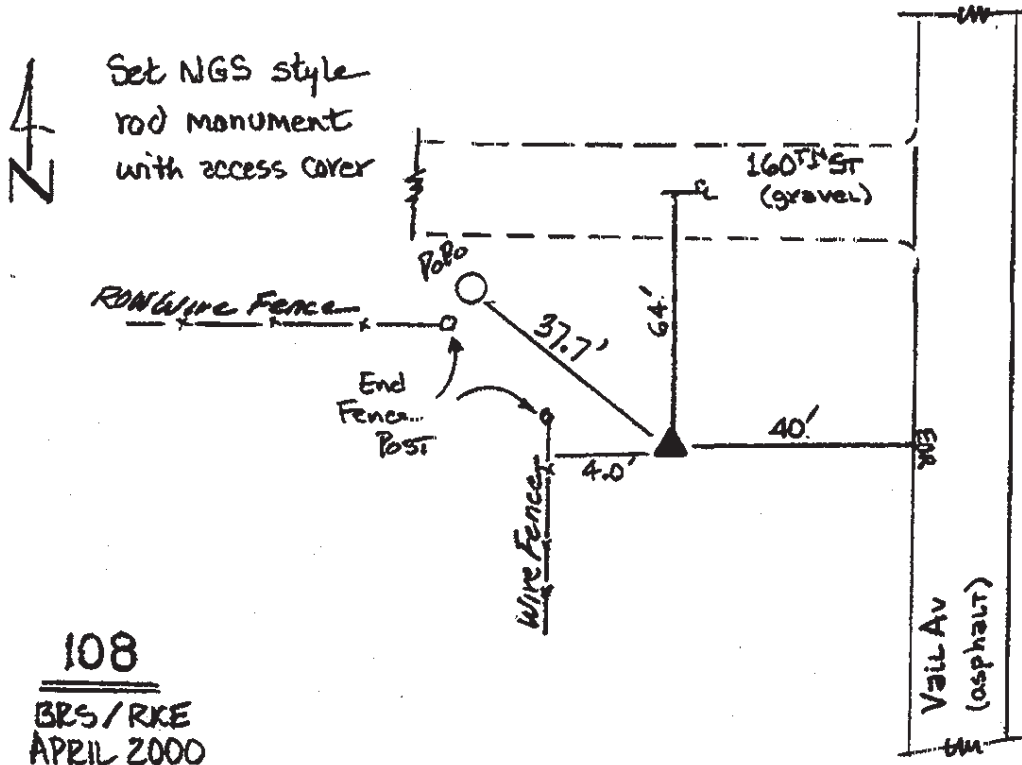 Set NGS style
rod monument
with access cover
N
160TH ST
(gravel)
℄
PoPo
ROW Wire Fence
37.7'
64'
End
Fence
Post
40'
EDR
4.0'
Wire Fence
Vail Av
(asphalt)
108
BRS/RKE
APRIL 2000